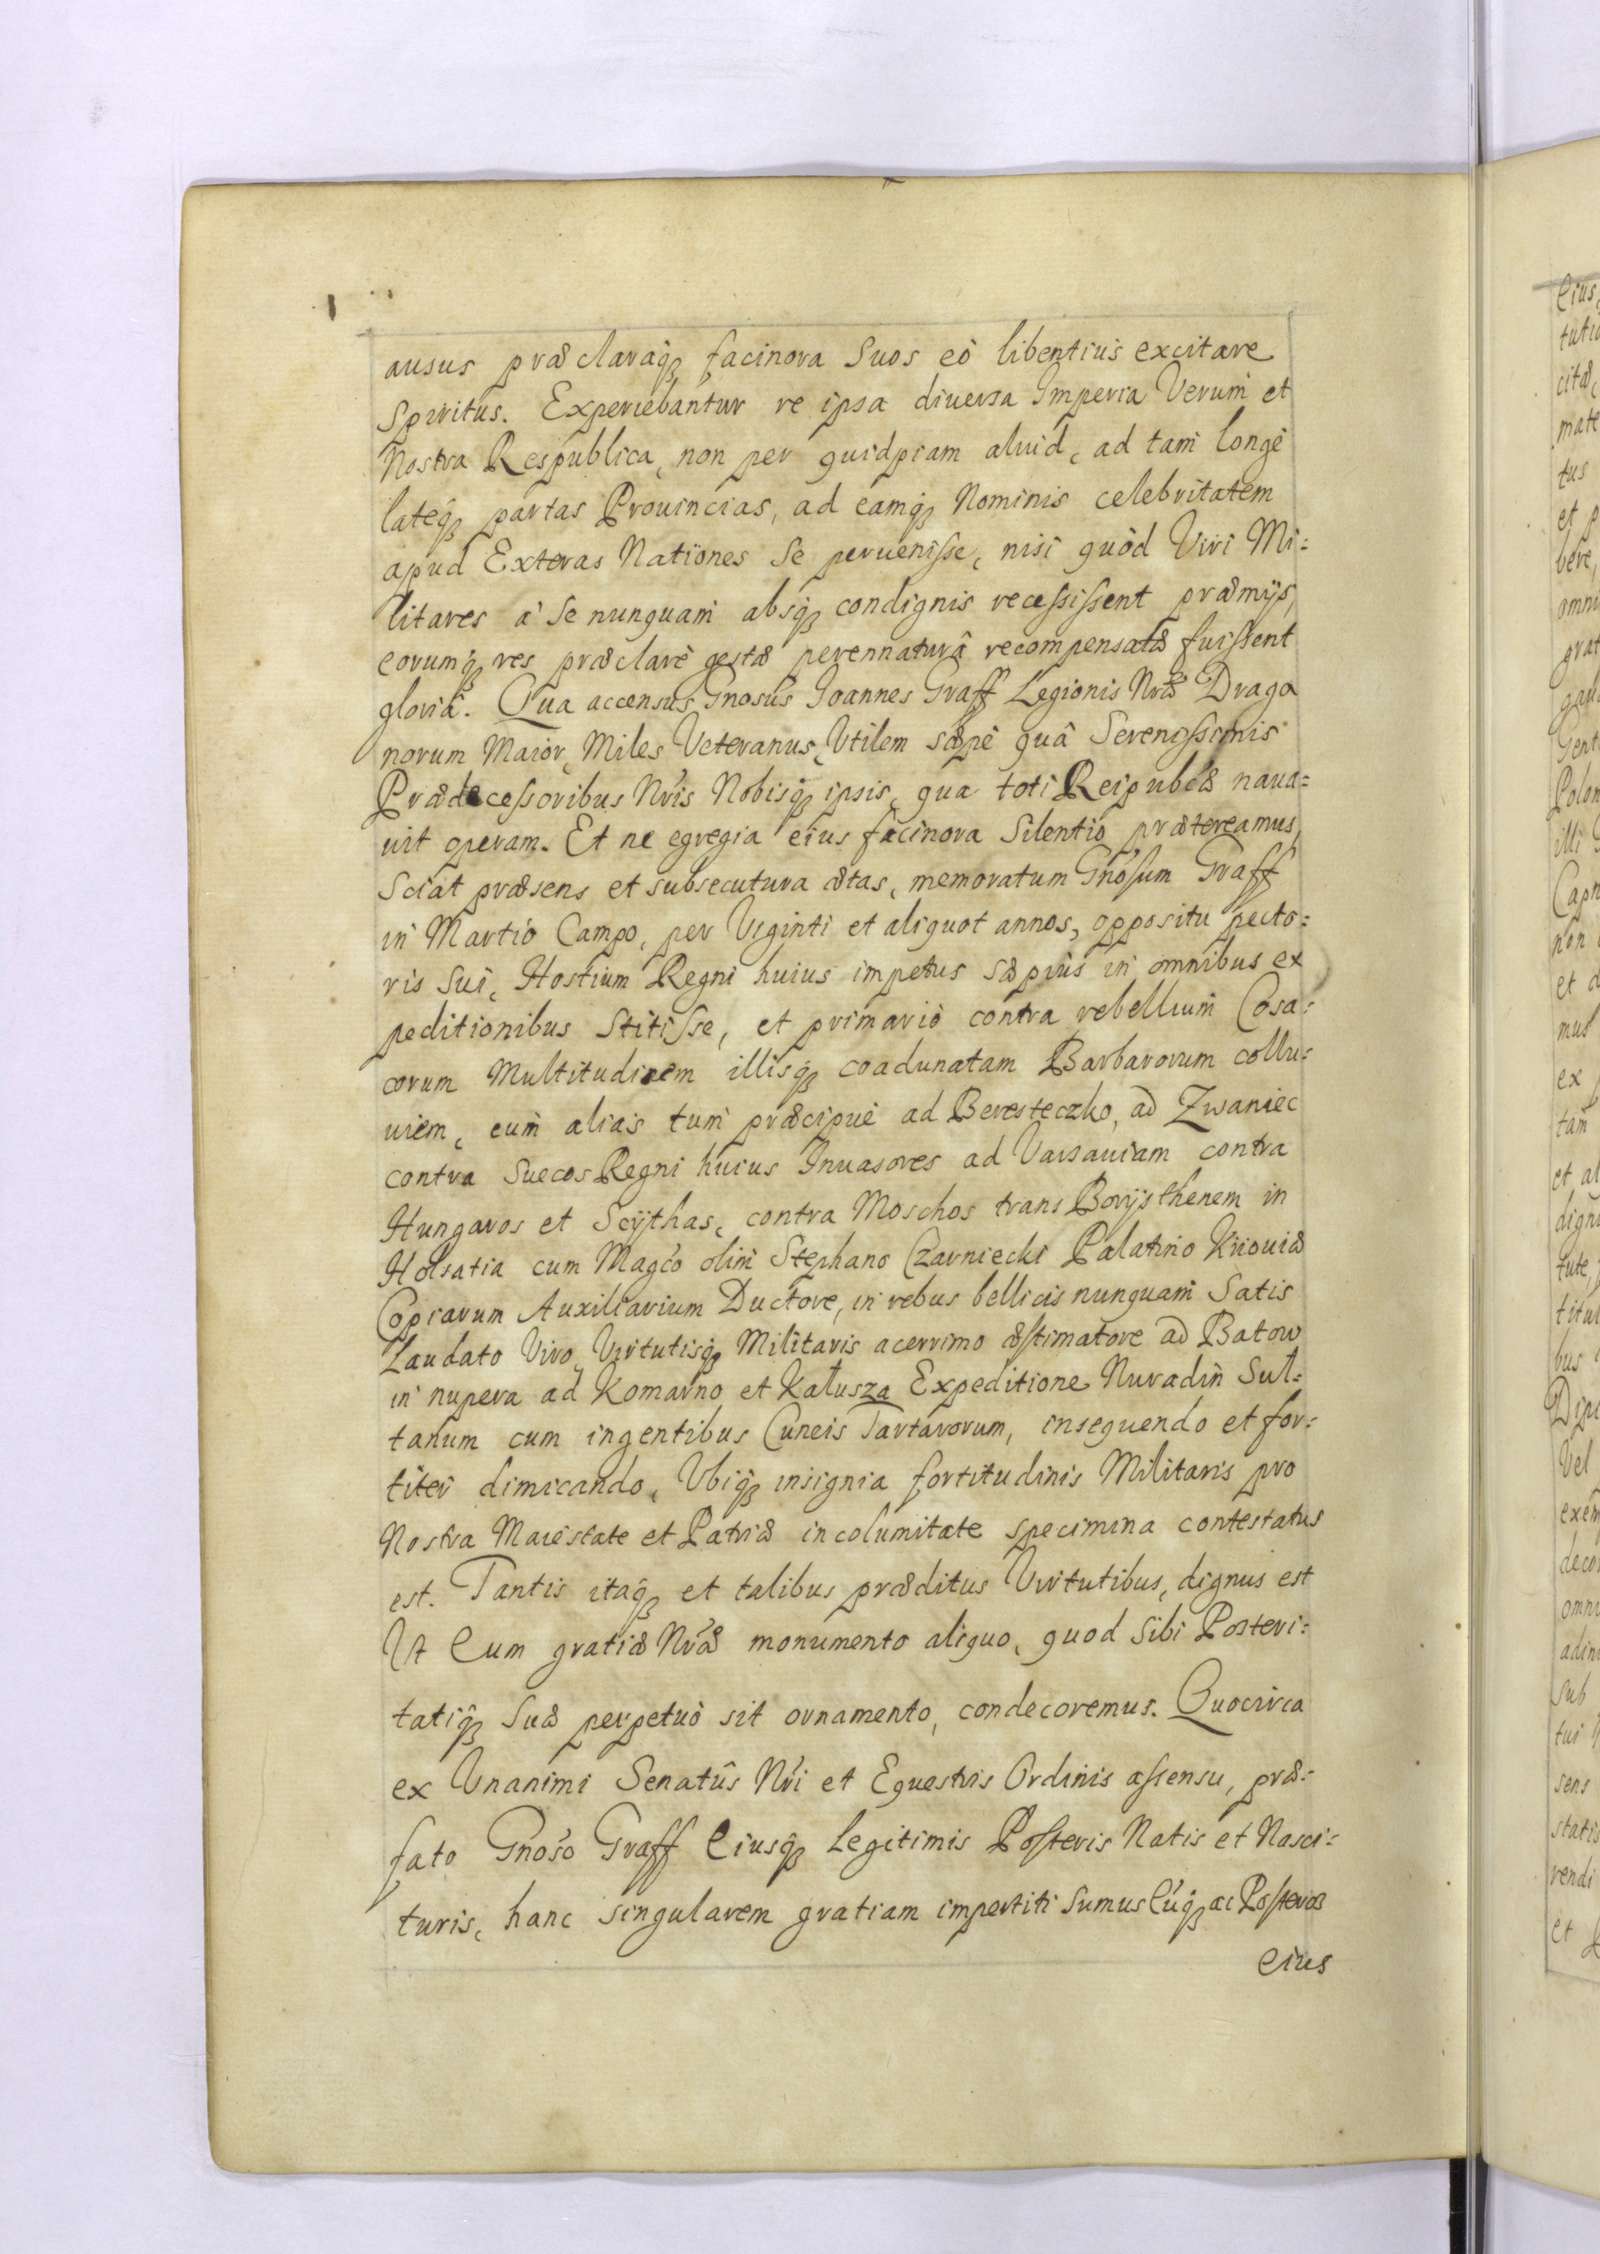 ausus præclaraq̃ facinora Suos eò libentius excitare
Spiritus. Experiebantur re ipsa diuersa Imperia Verum et
Nostra Respublica, non per quidpiam aliud, ad tam longè
lateq̃ partas Prouincias, ad eamq̃ Nominis celebritatem
apud Exteras Nationes Se peruenisse, nisi quòd Viri Mi=
litares à Se nunquam absq̃ condignis recessissent præmijs,
eorumq̃ res præclarè gestæ perennaturâ recompensatæ fuissent
gloriâ. Qua accensus Gnosus Joannes Graff Legionis Nræ Drago
norum Maior, Miles Veteranus, Vtilem sæpè quâ Serenissimis
Prædecessoribus Nris Nobisq̃ ipsis, qua toti Reipubcæ naua=
uit operam. Et ne egregia eius facinora Silentio prætereamus,
Sciat præsens et subsecutura ætas, memoratum Gnosum Graff
in Martio Campo, per Viginti et aliquot annos, oppositu pecto=
ris Sui, Hostium Regni huius impetus Sæpius in omnibus ex
peditionibus Stitisse, et primario contra rebellium Cosa=
corum Multitudinem illisq̃ coadunatam Barbarorum collu=
uiem, cum alias tum præcipuè ad Beresteczko, ad Zwaniec
contra Suecos Regni huius Inuasores ad Varsauiam contra
Hungaros et Scÿthas, contra Moschos trans Borysthenem in
Holsatia cum Magco olim Stephano Czarniecki Palatino Kiiouiæ
Copiarum Auxiliarium Ductore, in rebus bellicis nunquam Satis
Laudato Viro, Virtutisq̃ Militaris acerrimo æstimatore ad Batow
in nupera ad Komarno et Kałusza Expeditione Nuradin Sul=
tanum cum ingentibus Cuneis Tartarorum, insequendo et for=
titer dimicando, Vbiq̃ insignia fortitudinis Militaris pro
Nostra Maiestate et Patriæ incolumitate specimina contestatus
est. Tantis itaq̃ et talibus præditus Virtutibus, dignus est
Ut Eum gratiæ Nræ monumento aliquo, quod Sibi Posteri=
tatiq̃ Suæ perpetuò sit ornamento, condecoremus. Quocirca
ex Vnanimi Senatûs Nri et Equestris Ordinis assensu, præ=
fato Gnoso Graff Eiusq̃ Legitimis Posteris Natis et Nasci=
turis, hanc singularem gratiam impertiti Sumus Eũq̃ ac Posteros
eius